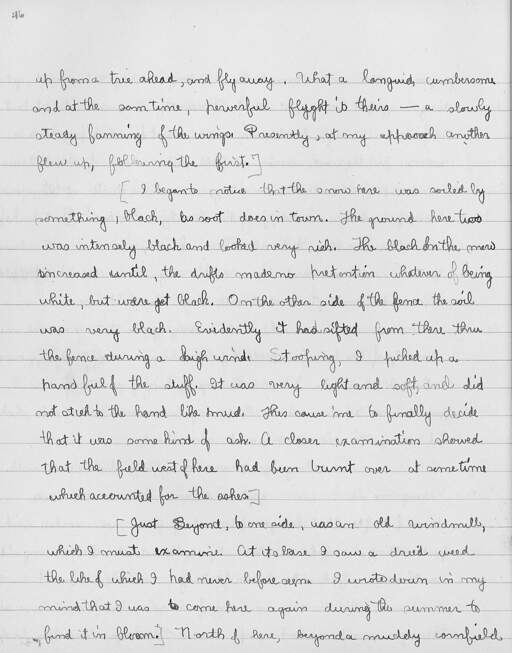 46
up from a tree ahead, and fly away. What a languid, cumbersome
and at the som time, powerful flyght is theirs — a slowly
steady fanning of the wings. Presently, at my approach another
flew up, following the first.]
[I began to notice that the snow here was soiled by
something, black, as soot does in town. The ground here too
was intensely black and looked very rich. The black on the snow
increased until, the drifts made no pretention whatever of being
white, but were jet black. On the other side of the fence the soil
was very black. Evidently it had sifted from there thru
the fence during a high wind. Stooping, I picked up a
handful of the stuff. It was very light and soft, and did
not stick to the hand like mud. This cause me to finally decide
that it was some kind of ash. A closer examination showed
that the field west of here had been burnt over at sometime
which accounted for the ashes]
[Just Beyond, to one side, was an old windmill,
which I must examine. At its base I saw a dried weed
the like of which I had never before seen. I wrote down in my
mind that I was to come here again during the summer to
find it in bloom.] North of here, beyond a muddy cornfield